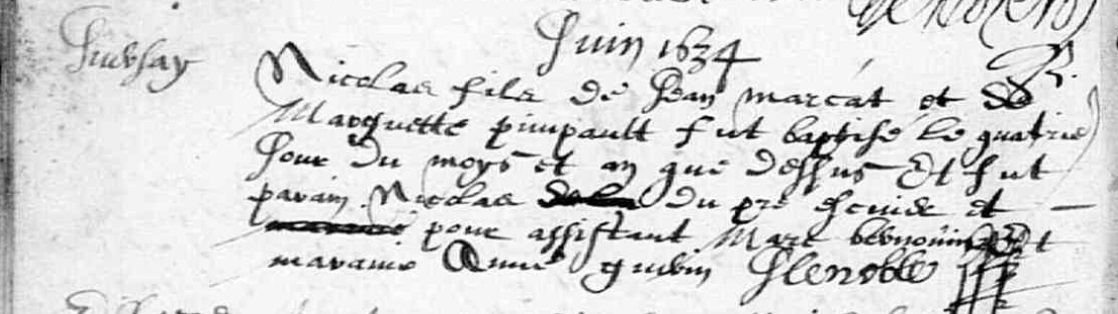 Juin 1634
Nicolas fils de Jean marcat et de
Marguette pimpault fut baptisé le quatrie
Jour du moys et an que dessus Et fut
parain Nicolas du pré escuier et
pour assistant Marc bernouin Et
maraine Anne guerin Glenoble